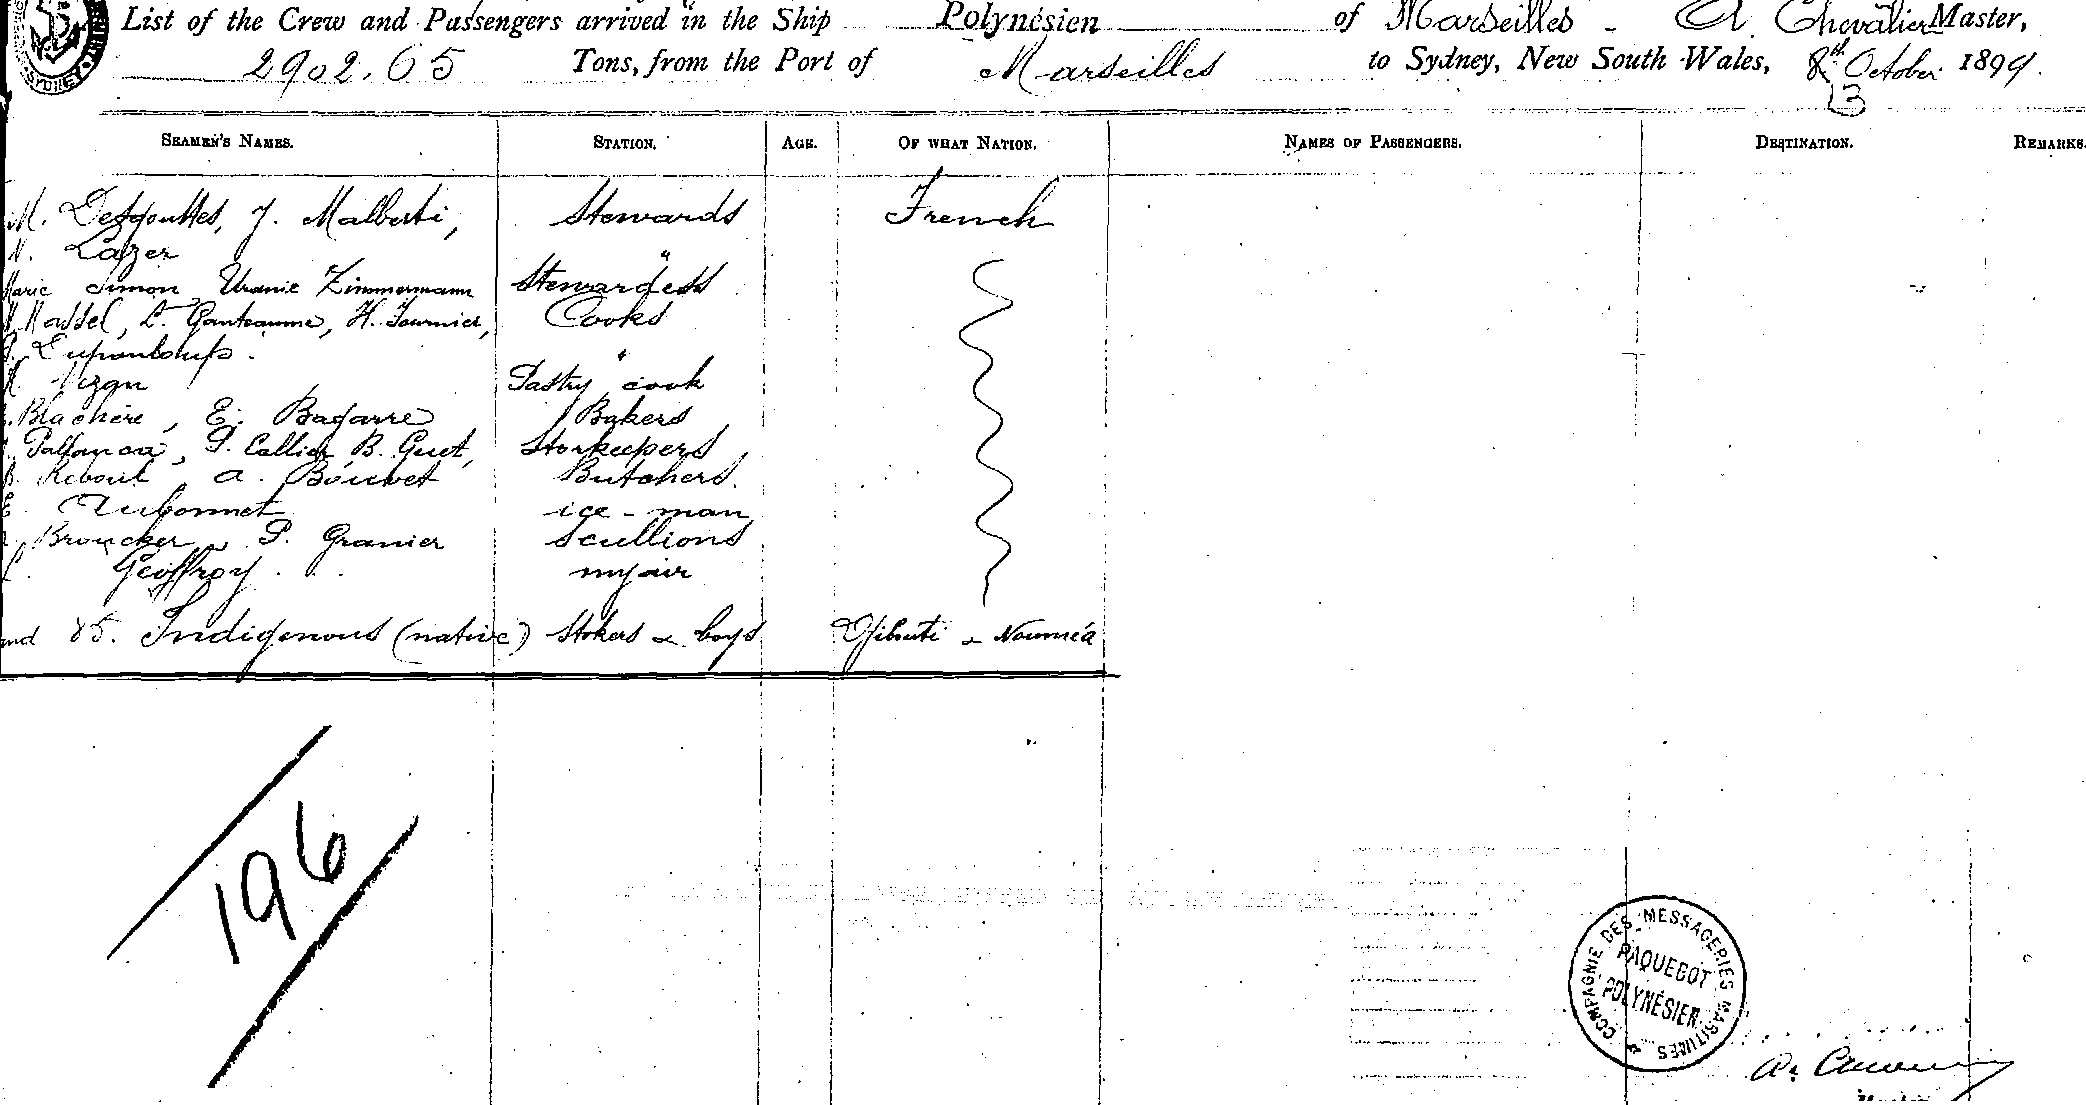 List of the Crew and Passengers arrived in the Ship Polynésien of Marseilles - A Chevalier Master,
2902.65 Tons, from the Port of Marseilles to Sydney, New South Wales, 8th October 1899.
13
SEAMEN'S NAMES. STATION. AGE. OF WHAT NATION. NAMES OF PASSENGERS. DESTINATION. REMARKS.
M. Desgouttes, J. Malberti, Stewards French
Lazer "
Marie Simon Uranie Zimmermann Stewardess
Massel, L. Ganteaume, H. Fournier, Cooks
Dupanloup. "
Pastry cook
Blachère, E. Bagarre Bakers
Pallanca, P. Callier B. Guet, Storkeepers
Reboul A. Bouvet Butchers.
E. Aubonnet ice-man
Broucker P. Granier Scullions
Geoffroy
and 85. Indigenous (native) Stokers & boys Djibuti & Nouméa
196
COMPAGNIE DES MESSAGERIES MARITIMES
PAQUEBOT
POLYNÉSIEN
SYDNEY